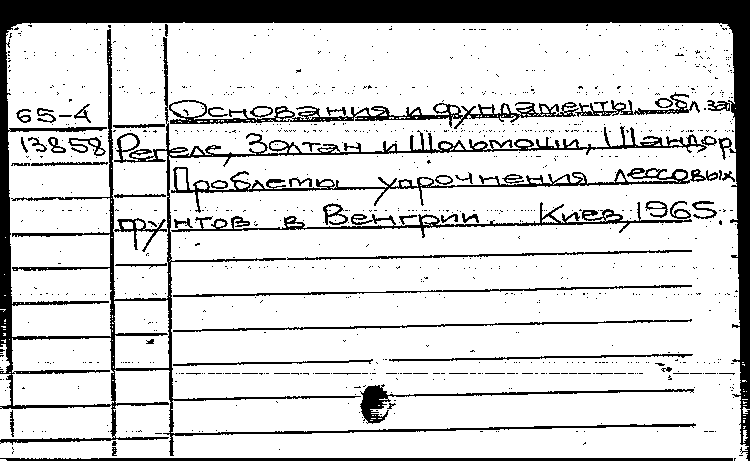 65-4 Основания и фундаменты. обл. заг
13858 Регеле, Золтан и Шольмоши, Шандор
Проблемы упрочнения лессовых
грунтов в Венгрии. Киев, 1965.